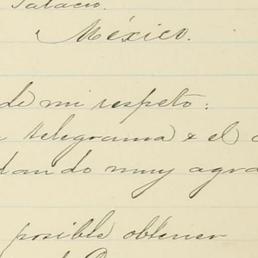 Palacio.
México.
de mi respeto:
telegrama & el
dando muy agra
posible obtener